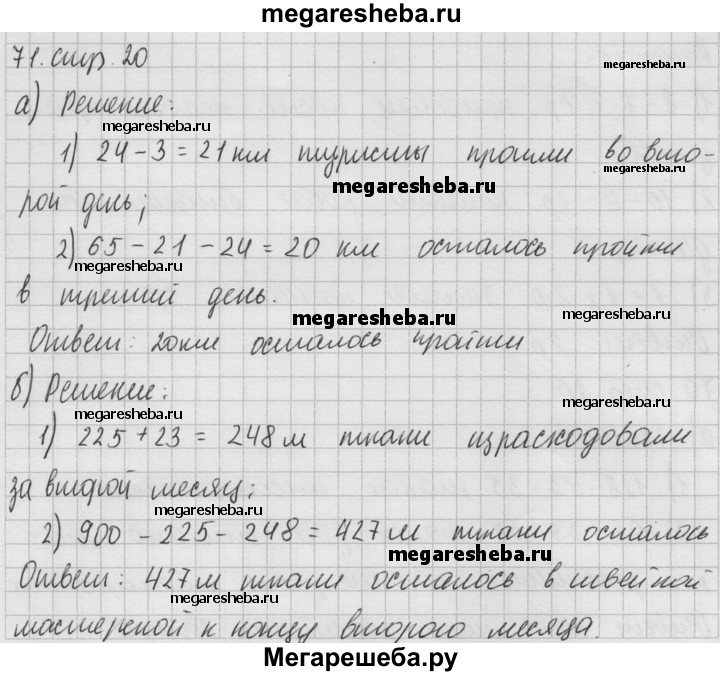 megaresheba.ru
71. стр. 20
megaresheba.ru
а) Решение:
megaresheba.ru
1) 24 - 3 = 21 км туристы прошли во вто-
megaresheba.ru
megaresheba.ru
рой день;
2) 65 - 21 - 24 = 20 км осталось пройти
megaresheba.ru
в третий день.
megaresheba.ru
megaresheba.ru
Ответ: 20км осталось пройти
б) Решение:
megaresheba.ru
megaresheba.ru
1) 225 + 23 = 248 м ткани израсходовали
за второй месяц;
megaresheba.ru
2) 900 - 225 - 248 = 427 м ткани осталось
megaresheba.ru
Ответ: 427 м ткани осталось в швейной
megaresheba.ru
мастерской к концу второго месяца.
Мегарешеба.ру